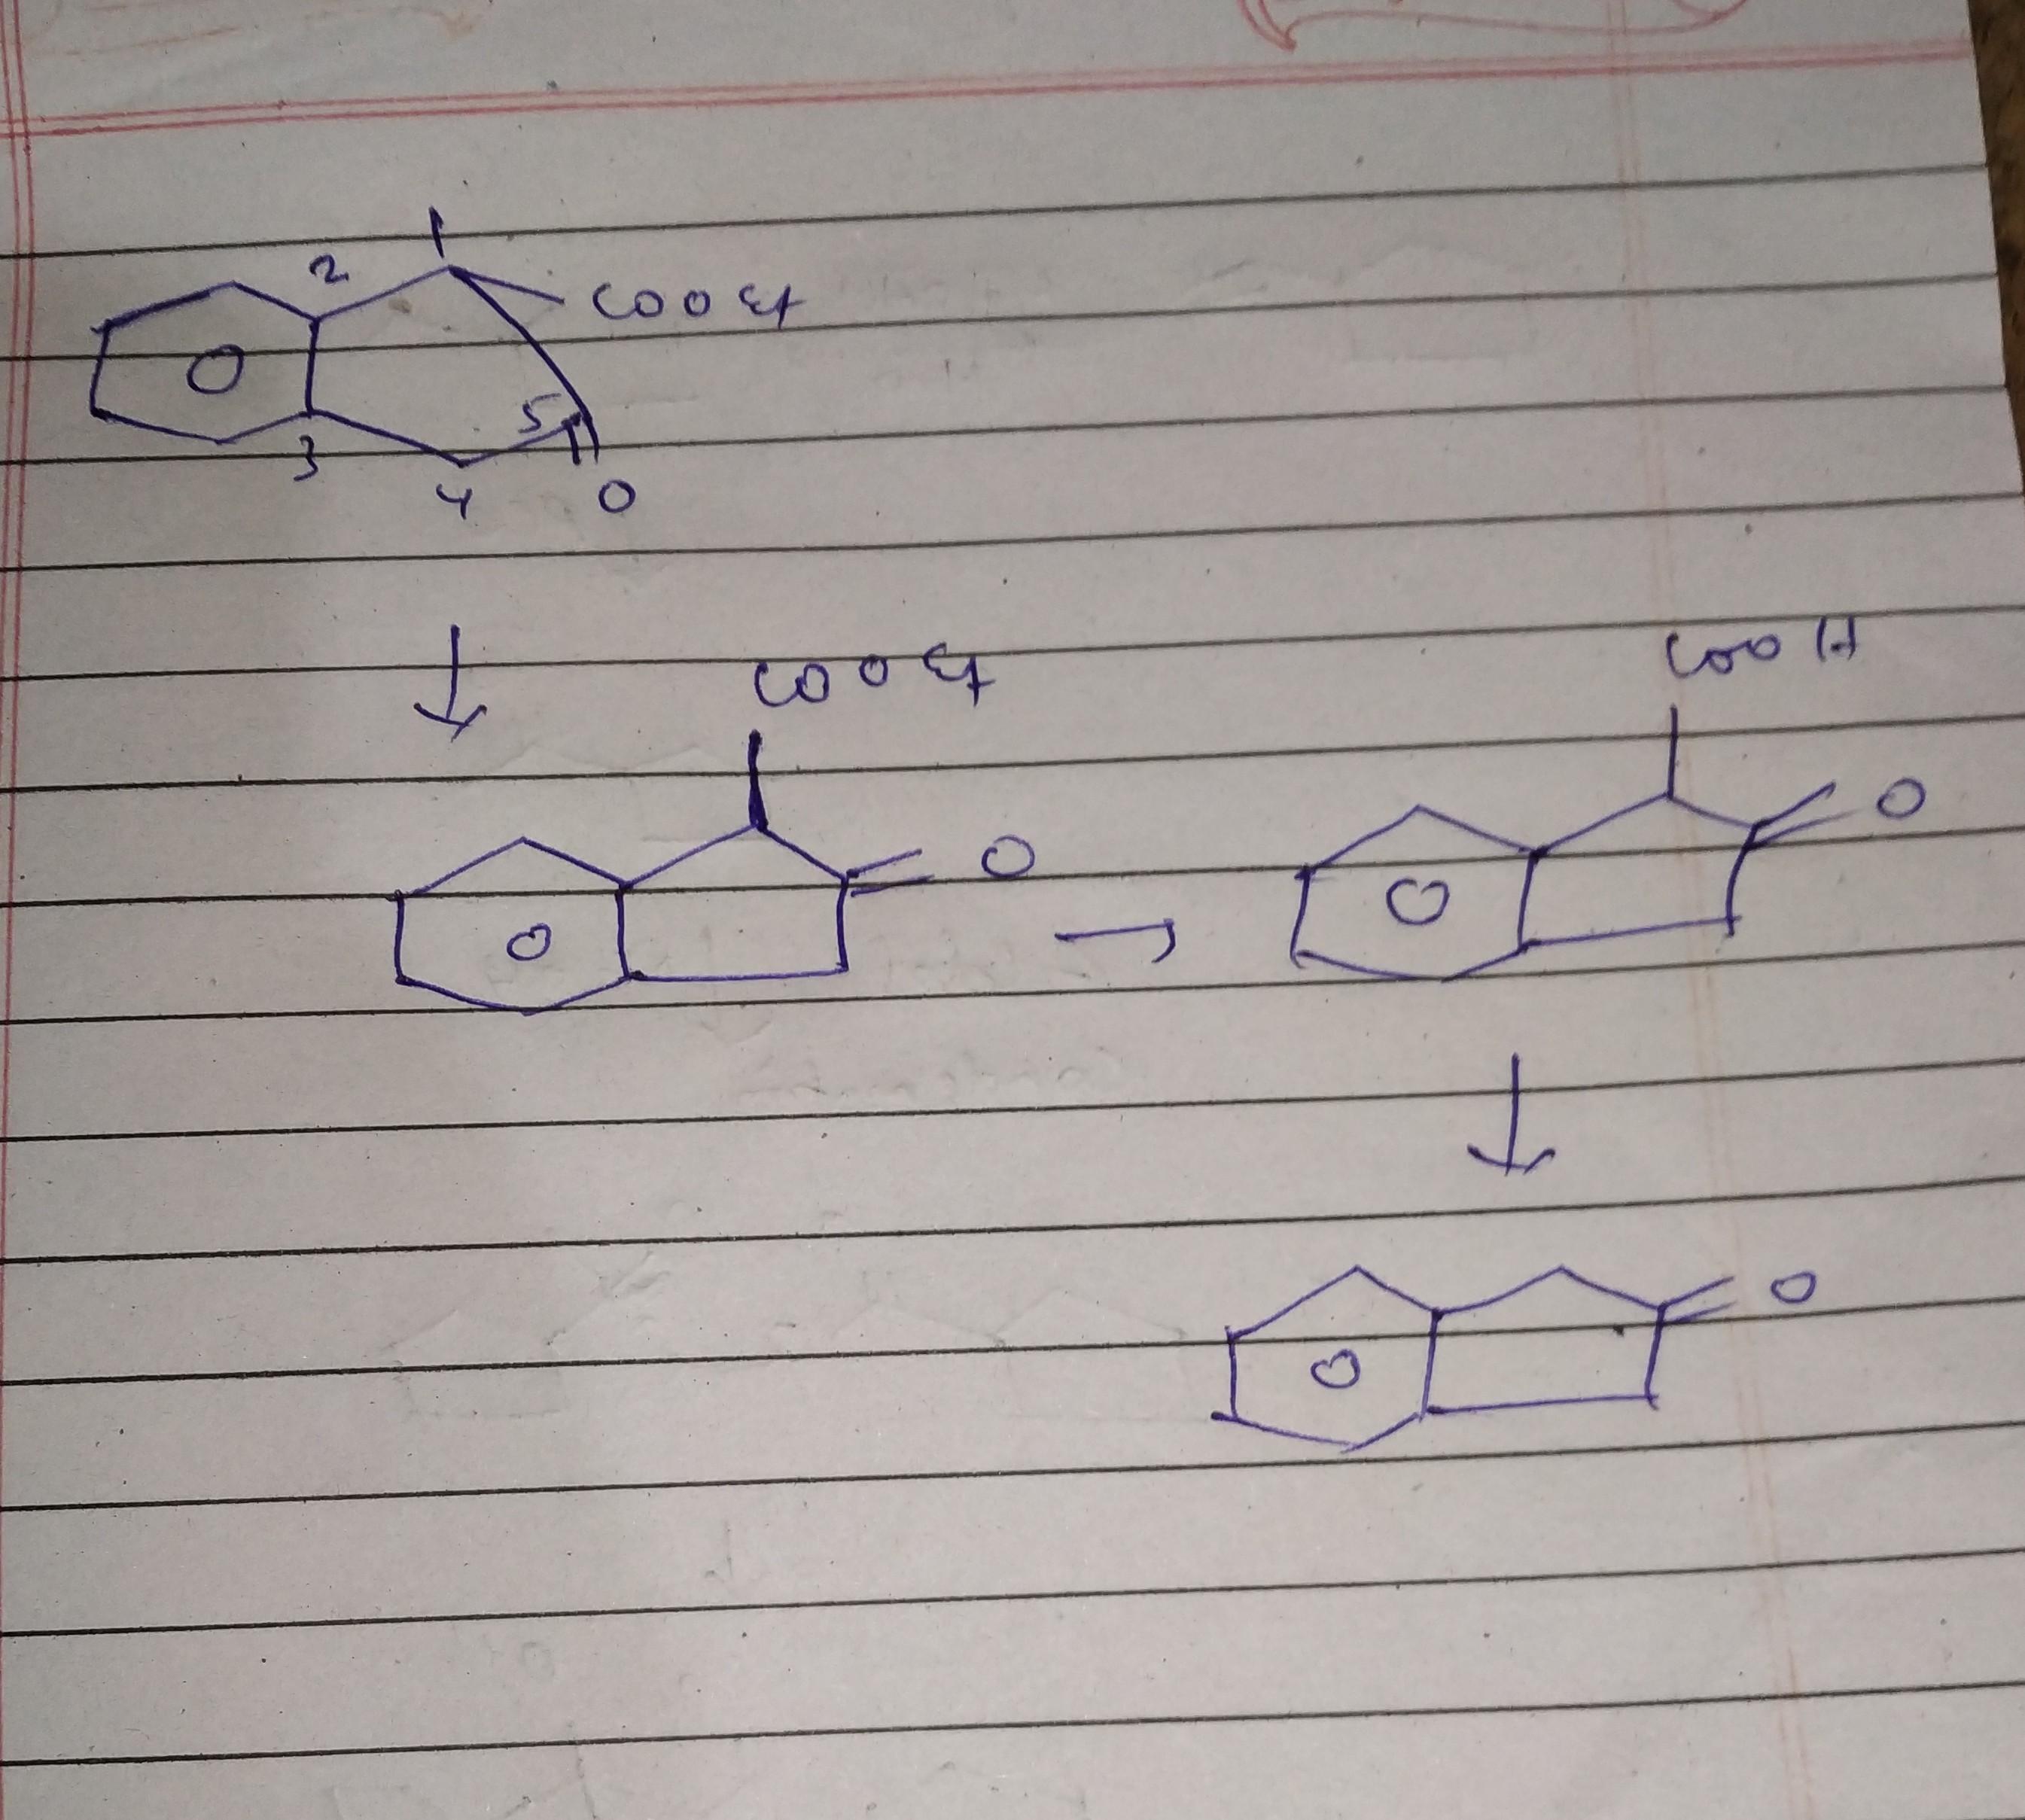 1
2
COOEt
5
3
4
O
COOEt
COOH
O
O
O